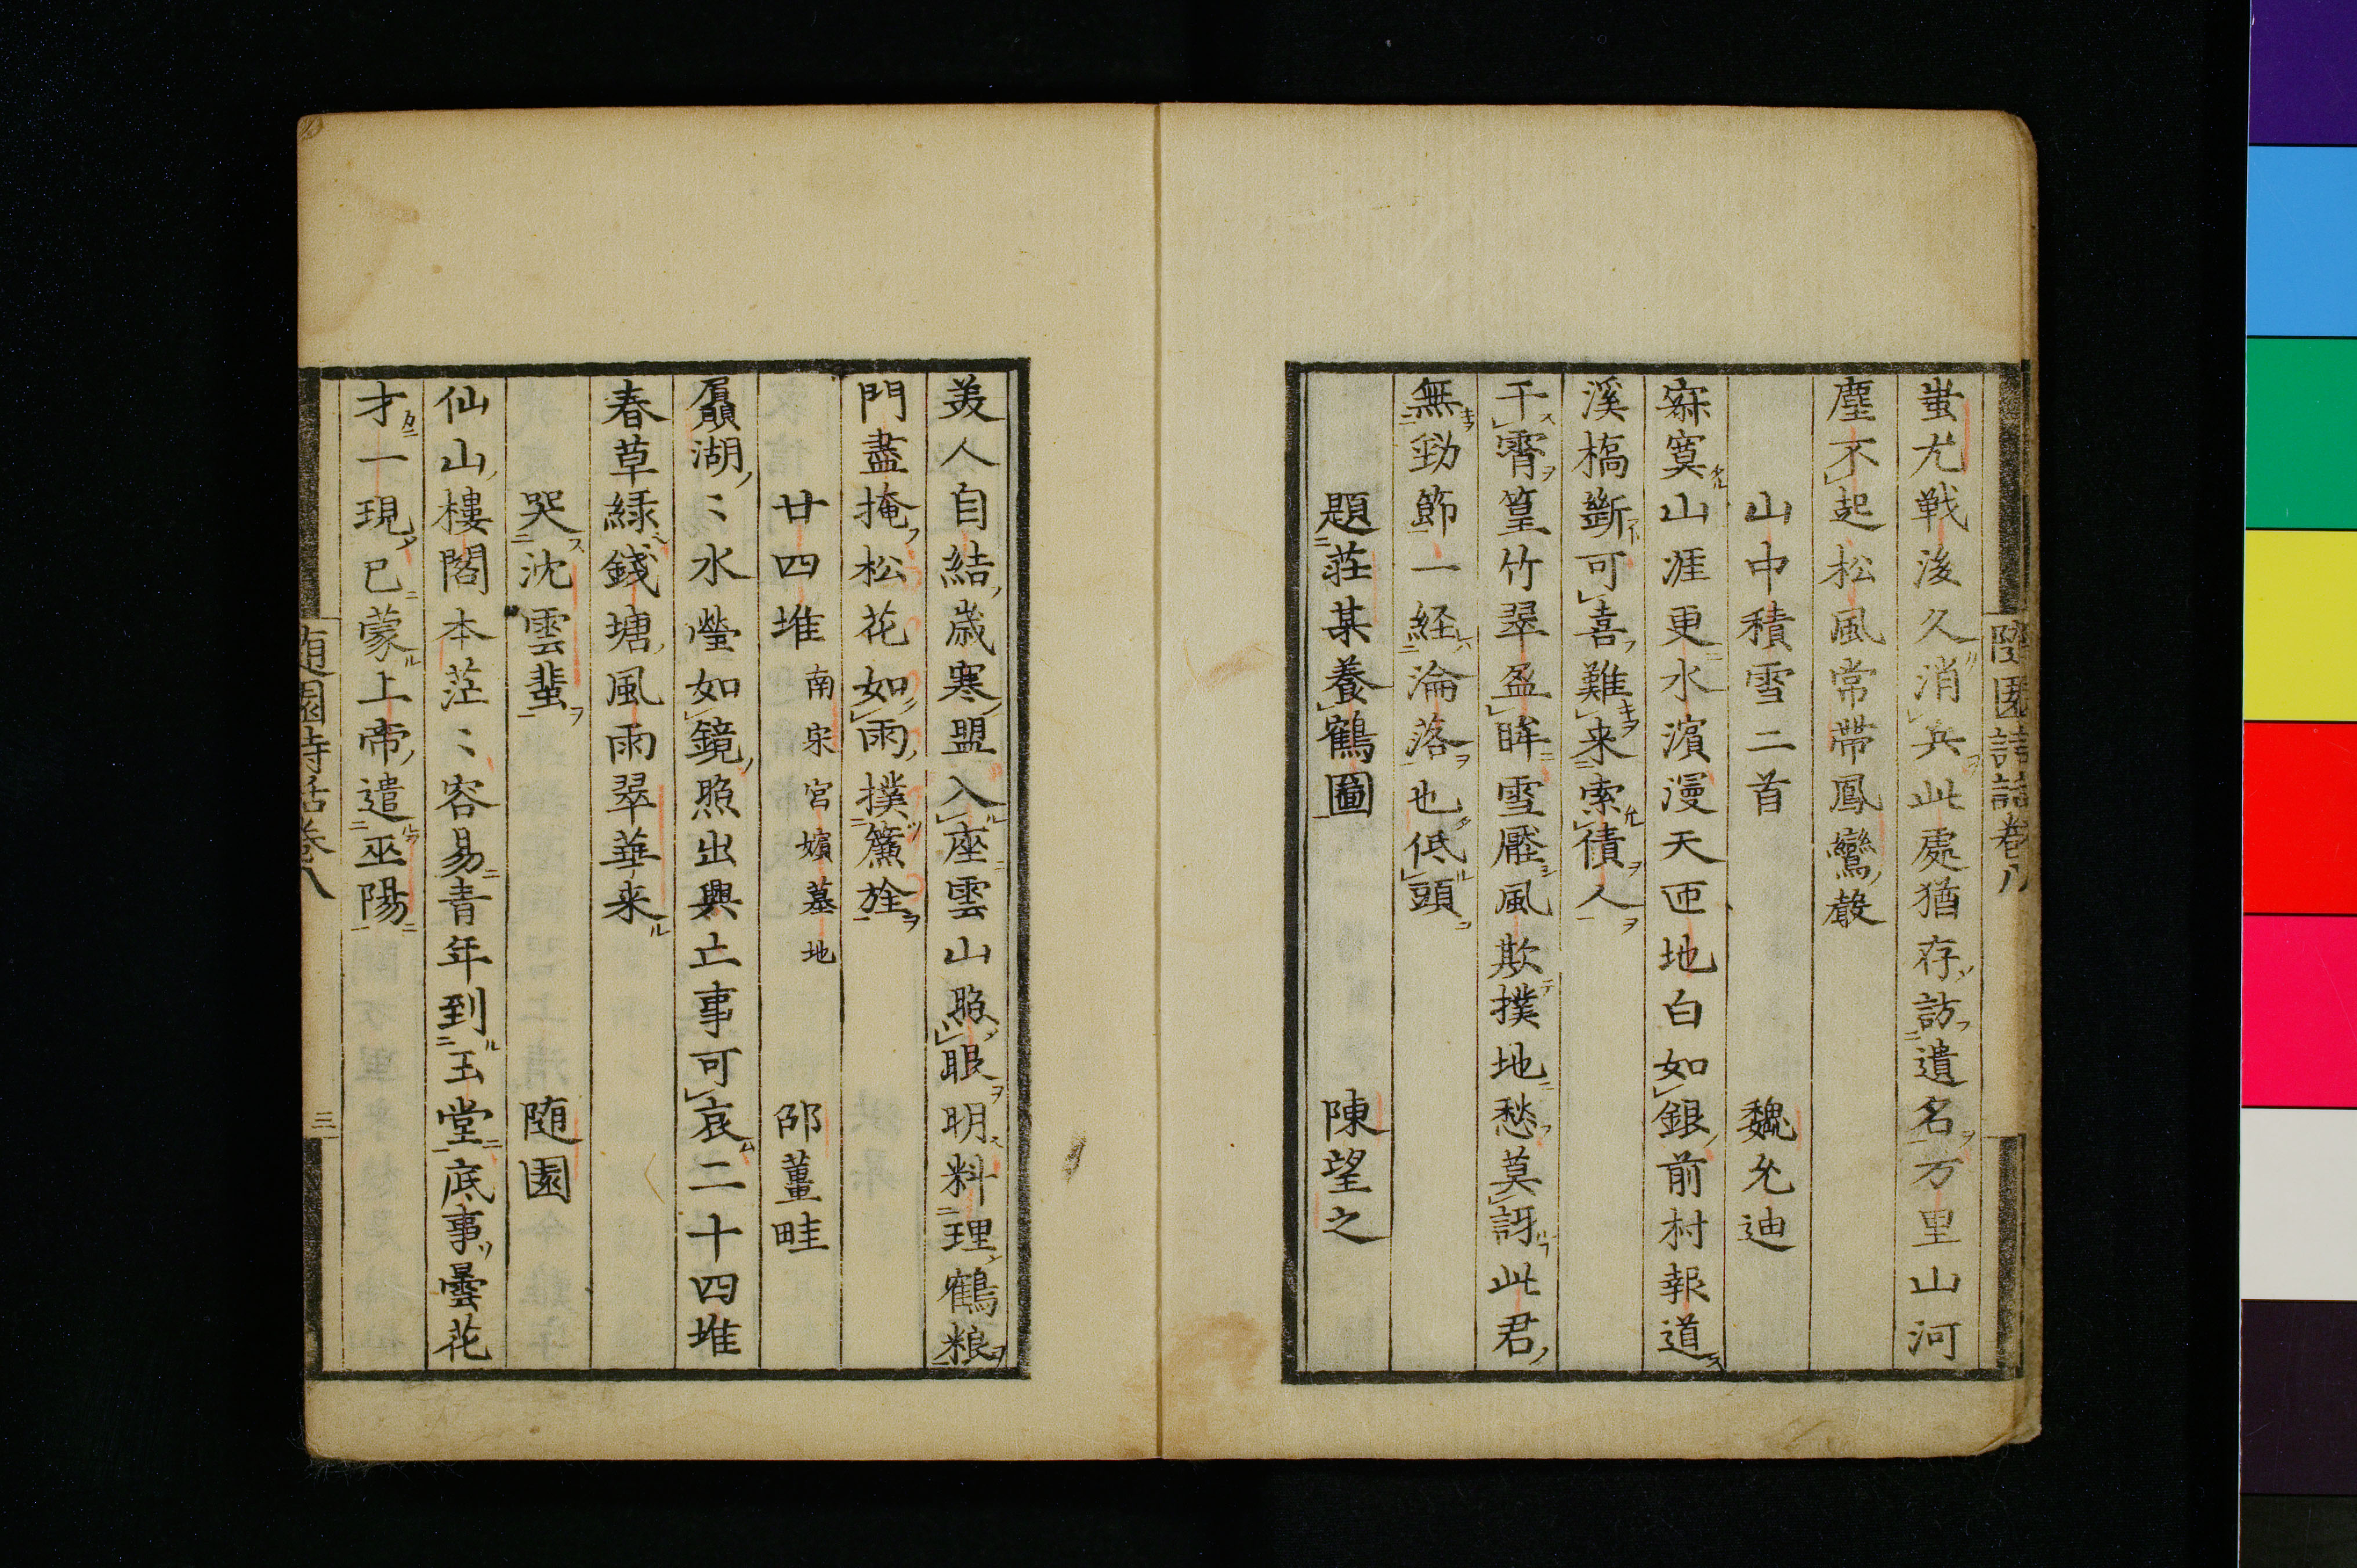 随園詩話巻八
蚩尤戦後久消兵此處猶存訪遺名万里山河
塵不起松風常帯鳳鸞聲
山中積雪二首　魏允迪
寂寞山涯更水濱漫天匝地白如銀前村報道
溪橋斷可喜難来索債人
干霄篁竹翠盈眸雪壓風欺撲地愁莫訝此君
無勁節一経淪落也低頭
題荘某養鶴圖　陳望之
美人自結歳寒盟入座雲山照眼明料理鶴粮
門盡掩松花如雨撲簾旌
廿四堆　南宋宮嬪墓地　邵薑畦
贔湖〻水瑩如鏡照出興亡事可哀二十四堆
春草緑錢塘風雨翠華来
哭沈雲蜚　随園
仙山樓閣本茫〻容易青年到玉堂底事曇花
才一現已蒙上帝遣巫陽
随園詩話巻八
三